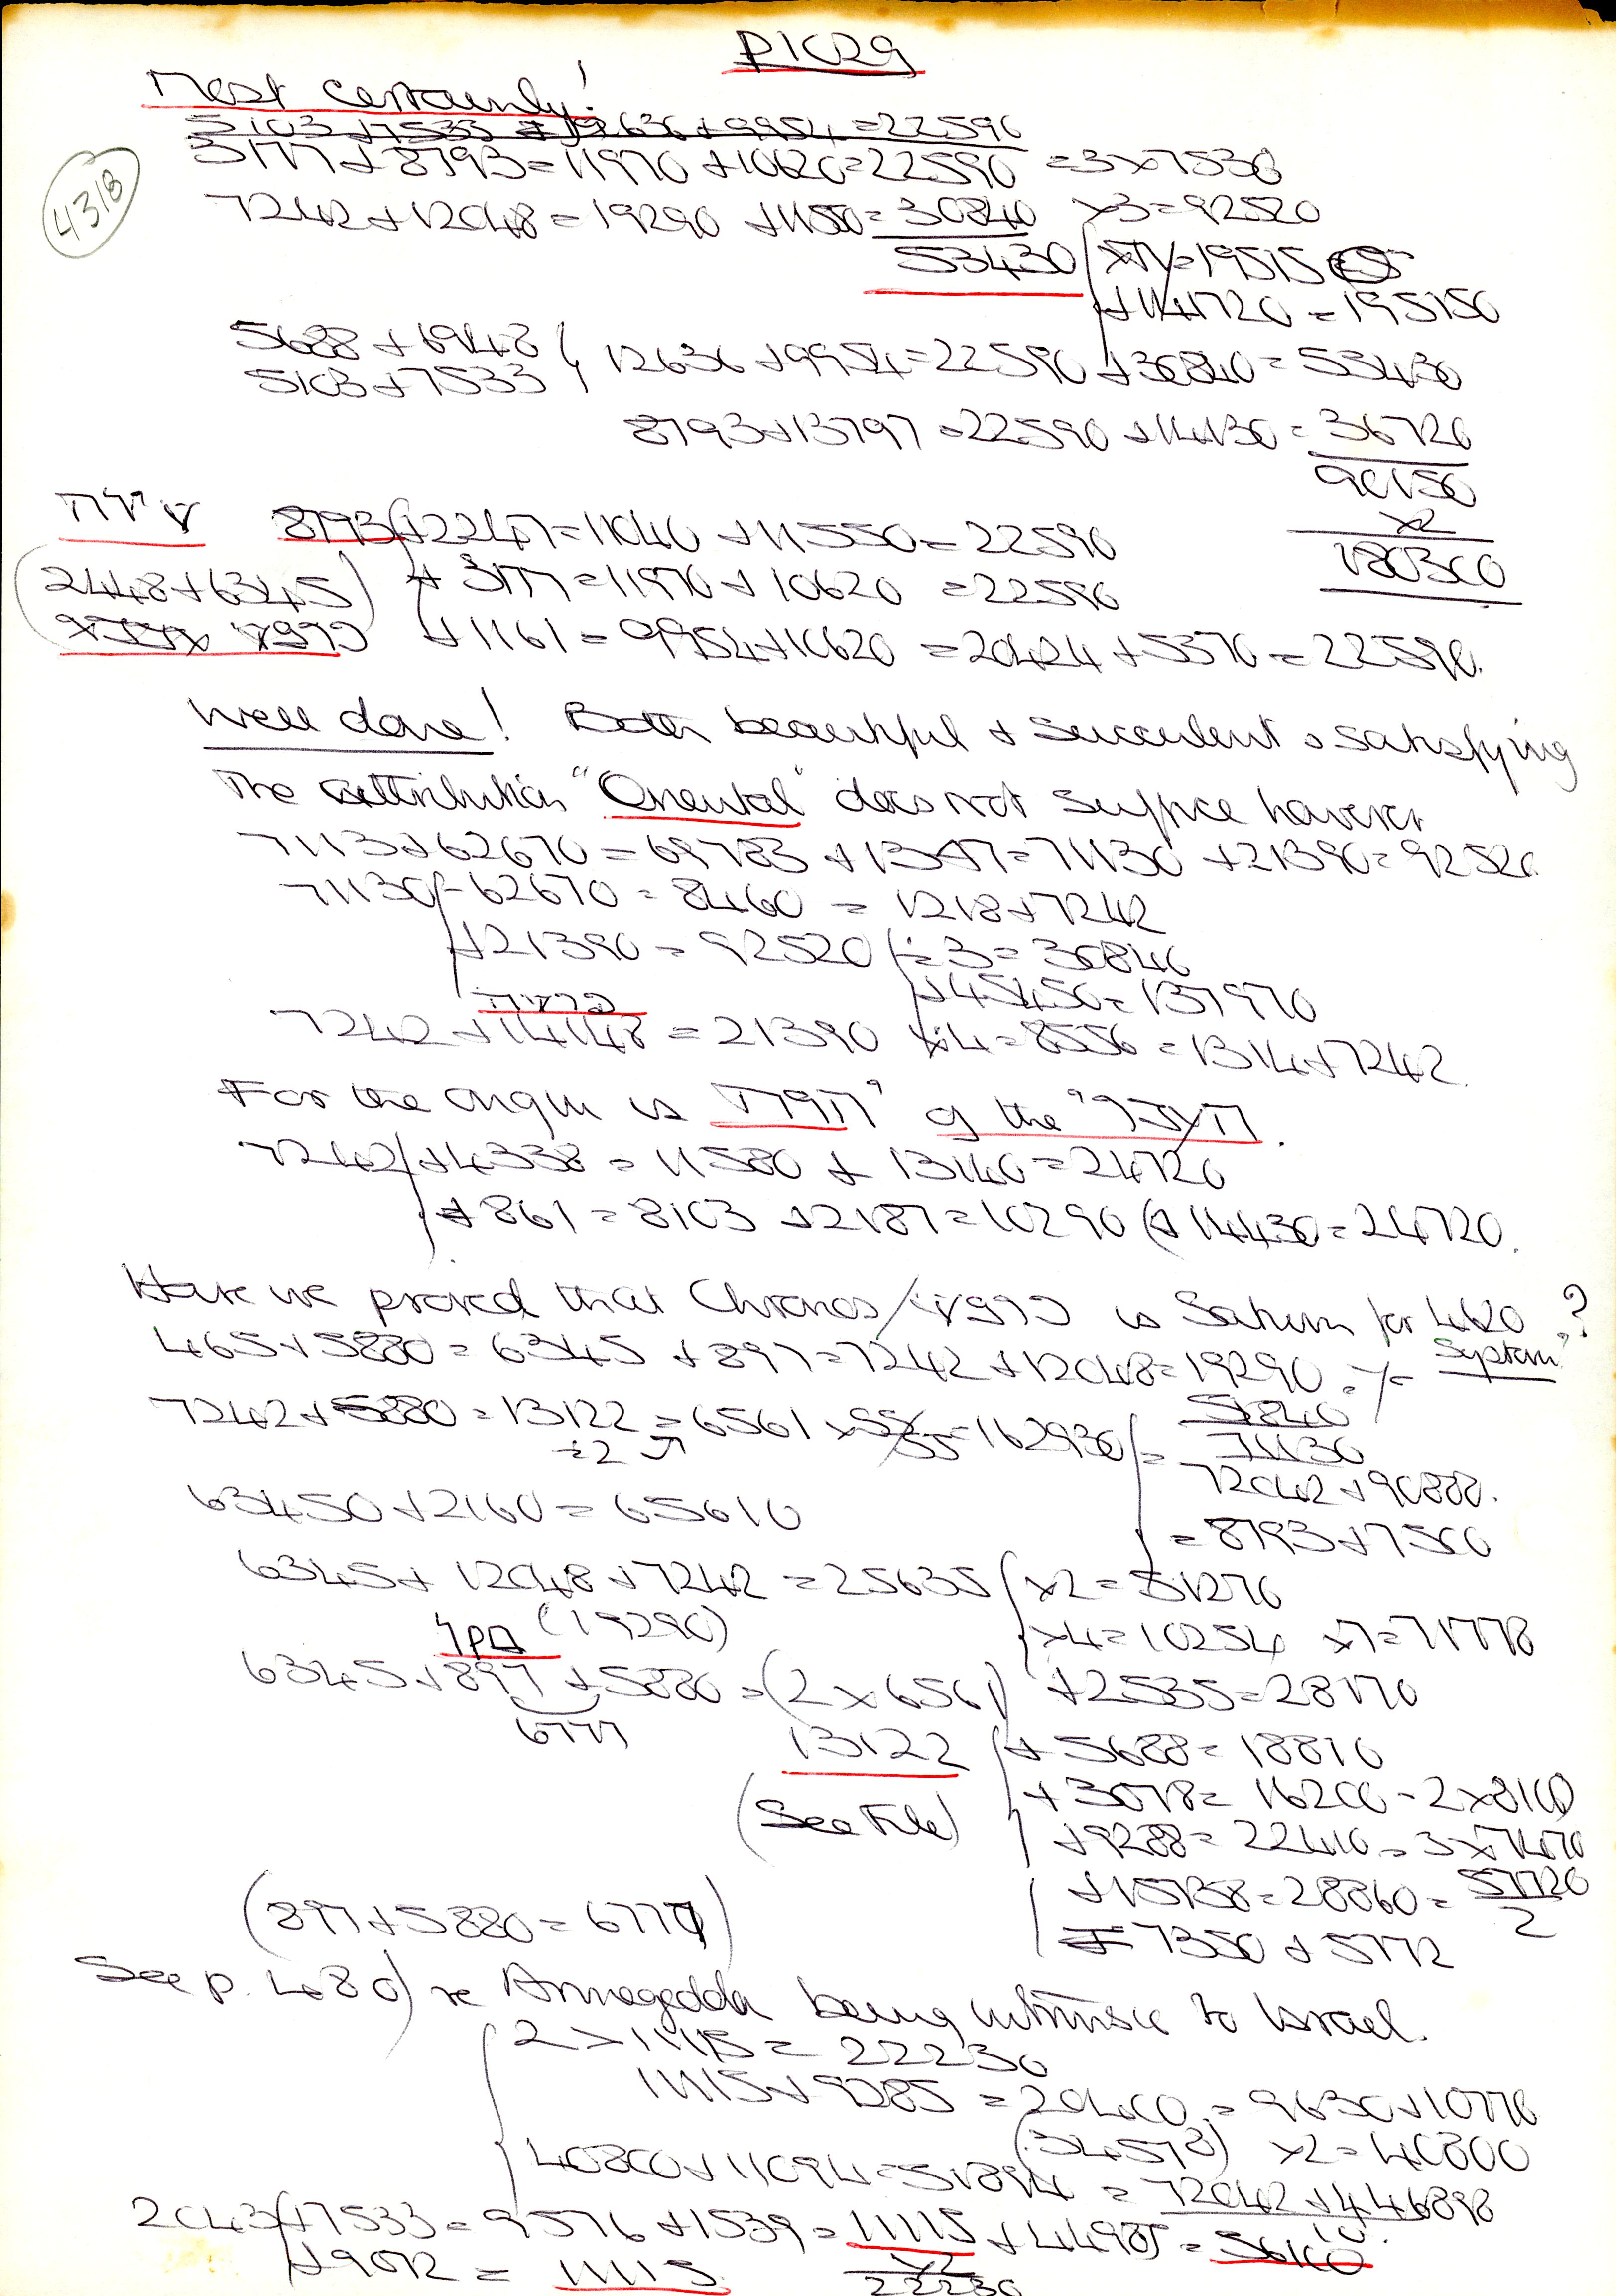 P1029
Most certainly!
5103 + 7533 = 12636 + 9954 = 22590
3177 + 8793 = 11970 + 10620 = 22590 = 3 x 7530
4318
7242 + 12048 = 19290 + 11550 = 30840 x3 = 92520
53430
+ 141720 = 195150
5688 + 6948
5103 + 7533
12636 + 9954 = 22590 + 30840 = 53430
8793 + 13797 = 22590 + 14130 = 36720
90150
x2
180300
8793 + 2247 = 11040 + 11550 = 22590
(2448 + 6345) + 3177 = 11970 + 10620 = 22590
+ 1161 = 9954 + 10620 = 20424 + 5370 = 22590.
Well done! Both beautiful & succulent & satisfying
The attribution "Oriental" does not suffice however
7113 + 62670 = 69783 + 1347 = 71130 + 21390 = 92520
71130 - 62670 = 8460 = 1218 + 7242
+ 21390 = 92520 ÷ 3 = 30840
+ 45450 = 137970
7242 + 14148 = 21390 x 4 = 8556 = 1314 + 7242.
For the origin is of the
7242 + 4338 = 11580 + 13140 = 24720
+ 861 = 8103 + 2187 = 10290 (+ 14430 = 24720.
Have we proved that Chronos/ is Saturn for 4620 System?
465 + 5880 = 6345 + 897 = 7242 + 12048 = 19290
7242 + 5880 = 13122 = 6561
÷2
= 162930
51840
71130
72042 + 90888.
63450 + 2160 = 65610
= 8793 + 7500
6345 + 12048 + 7242 = 25635 x2 = 51270
(19290)
x4 = 10254 x7 = 71778
6345 + 897 + 5880 = (2 x 6561) + 2535 = 28170
6777
13122 + 5688 = 18810
+ 3078 = 16200 = 2 x 8100
(See File)
+ 9288 = 22410 = 3 x 7470
+ 15738 = 28860 = 57720
2
(897 + 5880 = 6777)
= 7350 + 5772
See p. 480) re Armageddon being intrinsic to Israel.
2 x 11115 = 22230
11115 + 9285 = 20400 = 9630 + 10770
(34578) x2 = 40800
40800 + 11094 = 51894 = 72042 + 446898
2043 + 7533 = 9576 + 1539 = 11115 + 44985 = 56100
+ 9072 = 11115
x2
22230